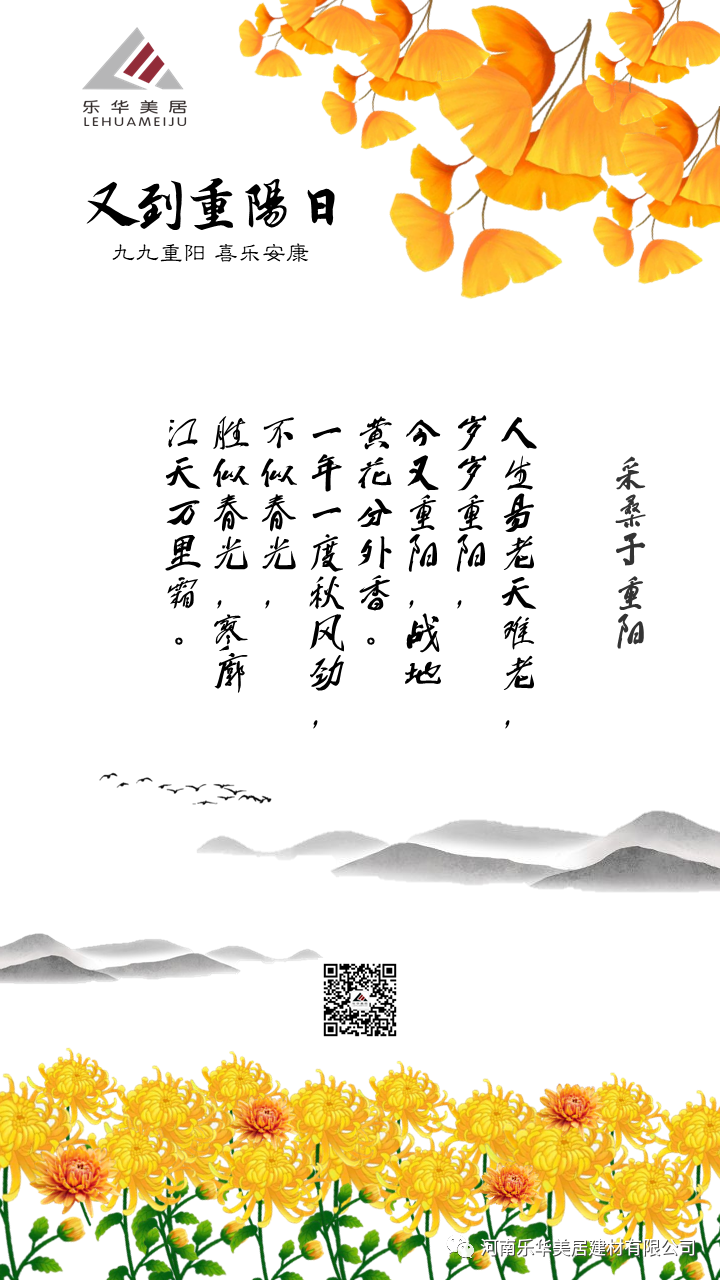 乐华美居
LEHUAMEIJU
又到重陽日
九九重阳 喜乐安康
采桑子 重阳
人生易老天难老，
岁岁重阳，
今又重阳，战地
黄花分外香。
一年一度秋风劲，
不似春光，
胜似春光，寥廓
江天万里霜。
河南乐华美居建材有限公司